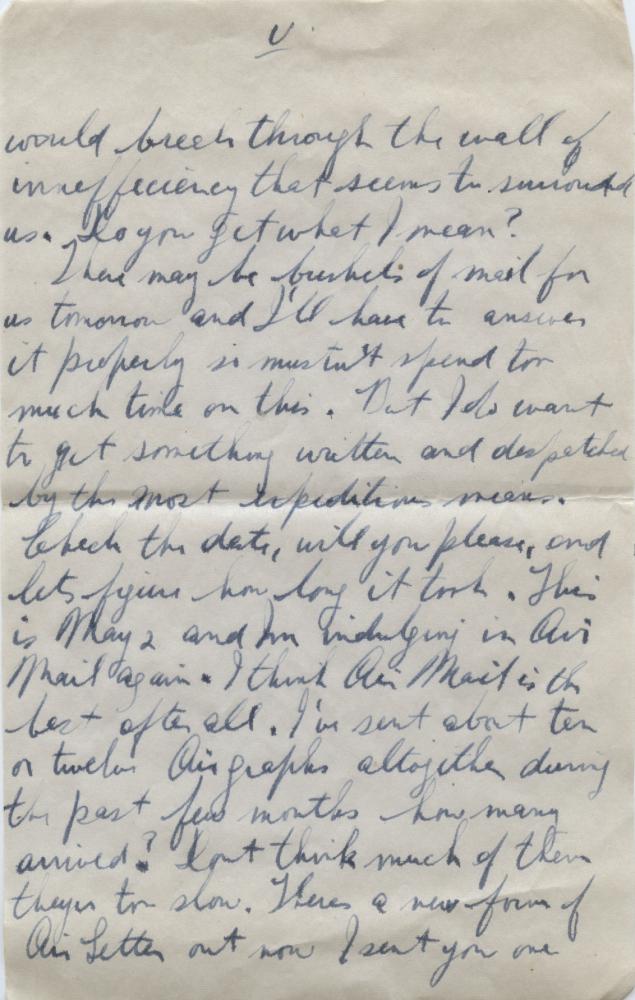 V.
would break through the wall of
inneffeciency that seems to surround
us. Do you get what I mean?
There may be bushels of mail for
us tomorrow and I'll have to answer
it properly so mustn't spend too
much time on this. But I do want
to get something written and despatched
by the most expeditious means.
Check the date, will you please, and
lets figure how long it took. This
is May 2 and Im indulging in Air
Mail again. I think Air Mail is the
best after all. I've sent about ten
or twelve Airgraphs altogether during
the past few months how many
arrived? Dont think much of them
theyre too slow. Theres a new form of
Air Letter out now I sent you one